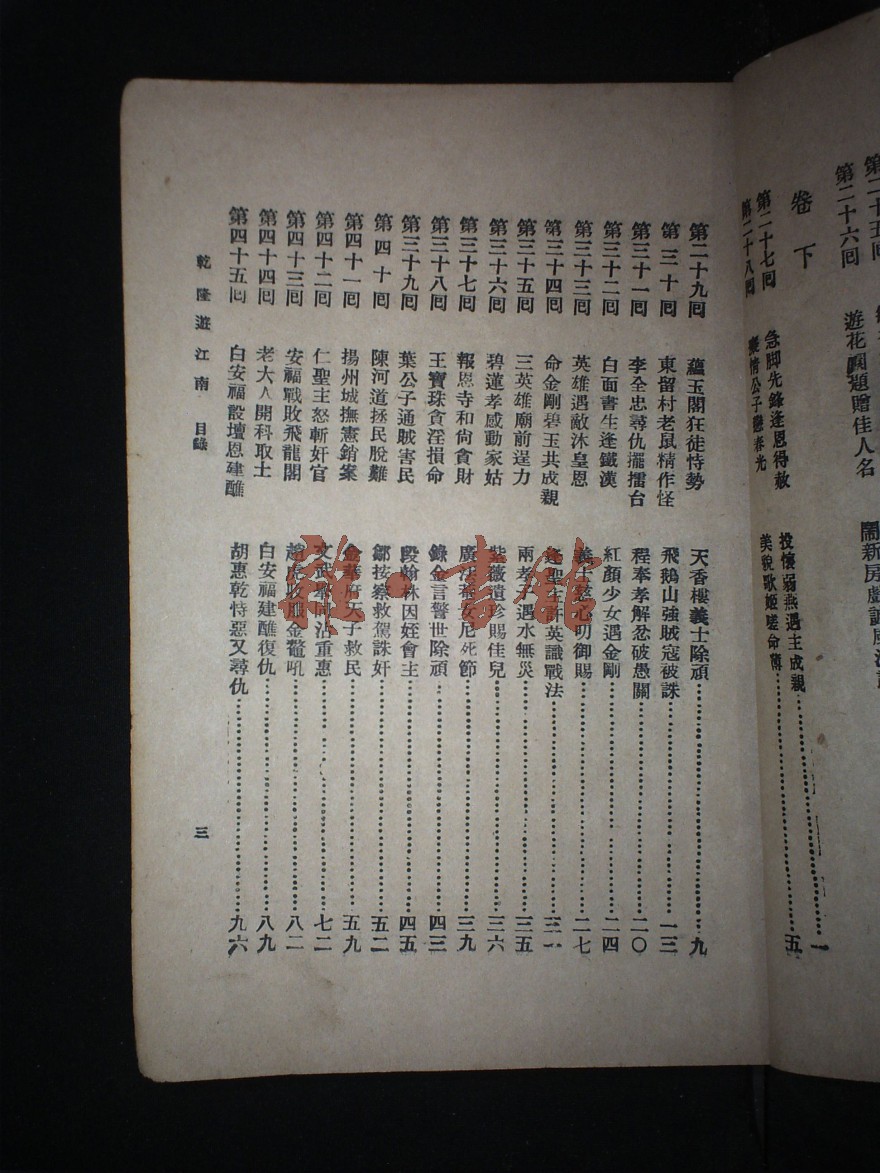 第二十五回
第二十六回 遊花園題贈佳人名
卷下
第二十七回 急脚先鋒逢恩得赦 投懷弱燕遇主成親 一
第二十八回 公子 春光 美貌歌姬嗟命薄 五
第二十九回 蘊玉閣狂徒恃勢 天香樓義士除頑 九
第三十回 東留村老鼠精作怪 飛鵝山強賊寇被誅 一三
第三十一回 李全忠尋仇擺擂台 程奉孝解忿破愚關 二〇
第三十二回 白面書生逢鐵漢 紅顏少女遇金剛 二四
第三十三回 英雄遇敵沐皇恩 義士慈心叨御賜 二七
第三十四回 命金剛碧玉共成親 逢聖主許英識戰法 三一
第三十五回 三英雄廟前逞力 兩孝子遇水無災 三五
第三十六回 碧蓮孝感動家姑 紫薇遺珍賜佳兒 三六
第三十七回 報恩寺和尙貪財 廣法菴女尼死節 三九
第三十八回 王寶珠貪淫損命 錄金言警世除頑 四三
第三十九回 葉公子通賊害民 段翰林因姪會主 四五
第四十回 陳河道拯民脫難 鄒按察救駕誅奸 五二
第四十一回 揚州城撫憲銷案 金華府天子救民 五九
第四十二回 仁聖主怒斬奸官 文武舉同沾重惠 七二
第四十三回 安福戰敗飛龍閣 趙虎收服金鰲吼 八二
第四十四回 老大人開科取士 白安福建醮復仇 八九
第四十五回 白安福設壇恩建醮 胡惠乾恃惡又尋仇 九六
乾隆遊江南 目錄
三